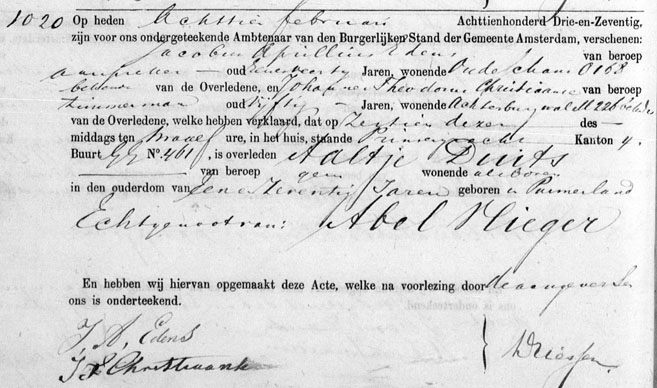 1020 Op heden Achttien februari Achttienhonderd Drie-en-Zeventig,
zijn voor ons ondergeteekende Ambtenaar van den Burgerlijken Stand der Gemeente Amsterdam, verschenen:
Jacobus Apollius Edens van beroep
aanspreker oud Jaren, wonende Oude schans O 168
bekende van de Overledene, en Johannes Theodorus Christiaanse van beroep
timmerman oud vijftig Jaren, wonende Achterburgwal bekende
van de Overledene, welke hebben verklaard, dat op Zestien dezer des
middags ten twaalf ure, in het huis, staande Prinsengracht Kanton 4.
Buurt YY No. 461, is overleden Aaltje Duits
van beroep geen wonende aldaar
in den ouderdom van Een en Zeventig Jaren geboren in Purmerland
Echtgenoot van: Abel Vlieger
En hebben wij hiervan opgemaakt deze Acte, welke na voorlezing door de aangevers en
ons is onderteekend.
J. A. Edens
J T Christiaanse